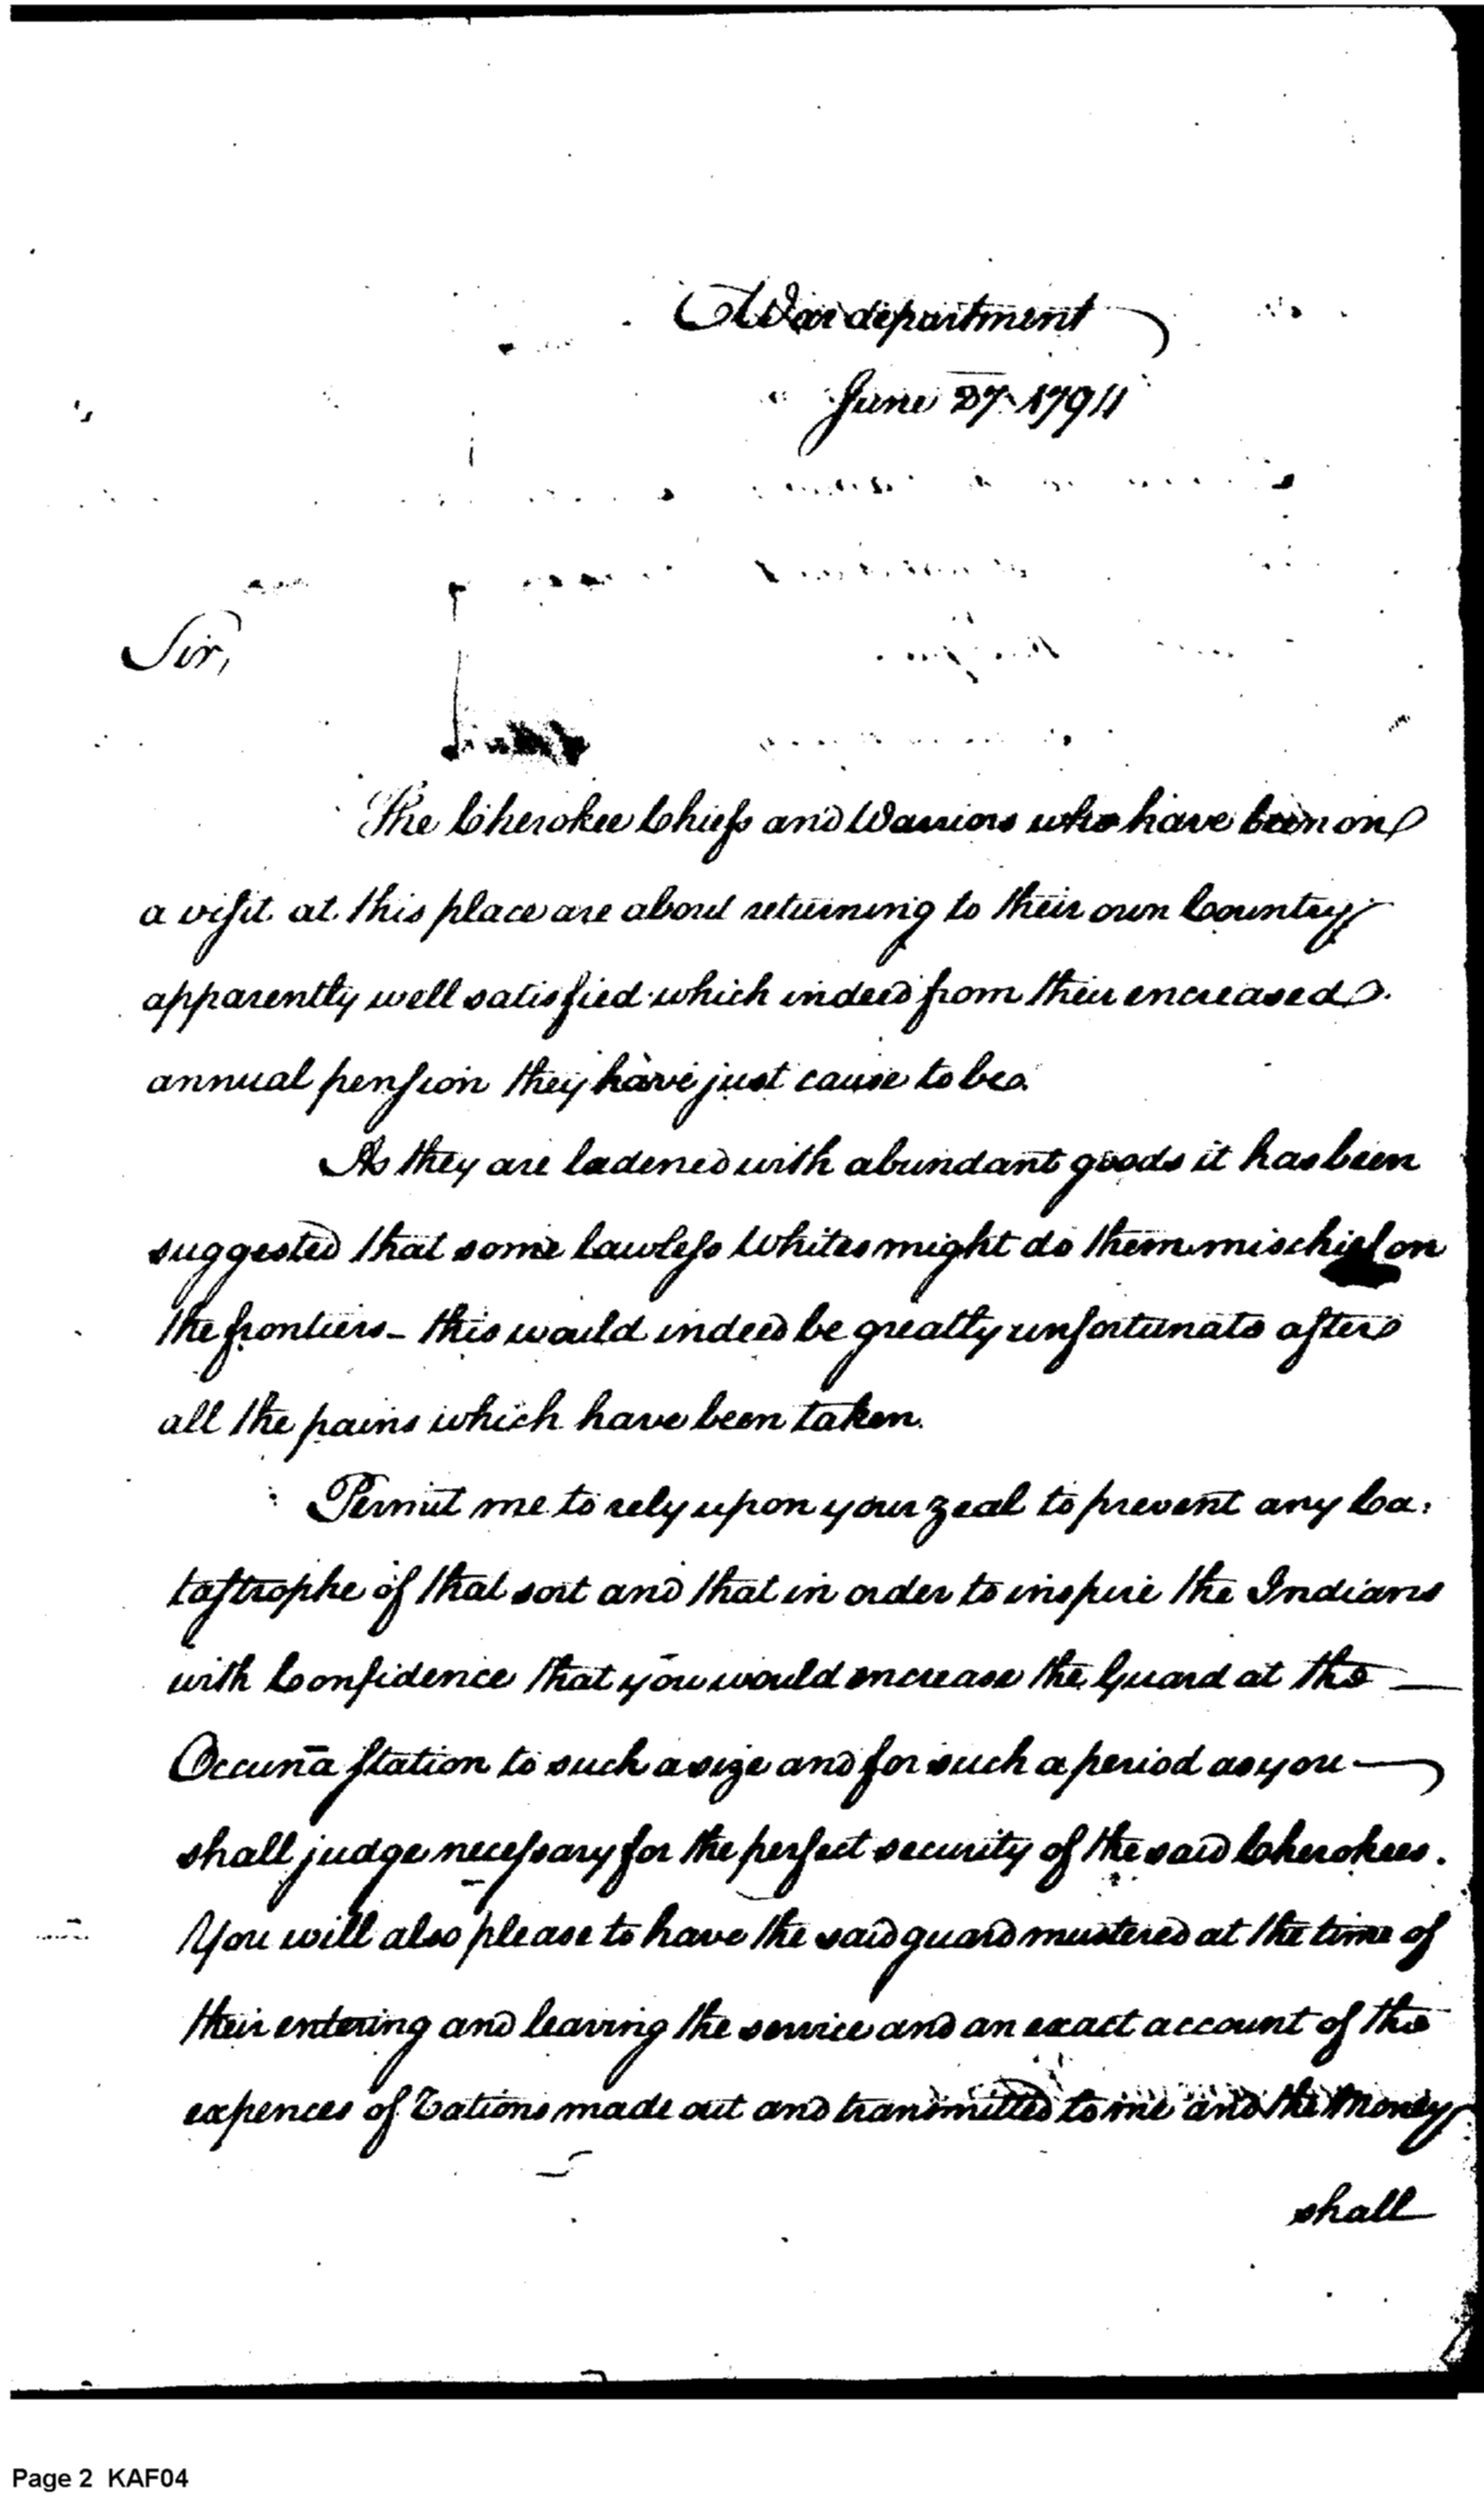 War department
June 27. 1794
Sir,
The Cherokee Chiefs and Warriors who have been on
a visit at this place are about returning to their own Country
apparently well satisfied which indeed from their encreased
annual pension they have just cause to be.
As they are ladened with abundant goods it has been
suggested that some lawless Whites might do them mischief on
the frontiers – this would indeed be greatly unfortunate after
all the pains which have been taken.
Permit me to rely upon your zeal to prevent any Ca:
tastrophe of that sort and that in order to inspire the Indians
with Confidence that you would encrease the Guard at the —
Occuna station to such a size and for such a period as you —
shall judge necessary for the perfect security of the said Cherokees.
You will also please to have the said guard mustered at the time of
their entering and leaving the service and an exact account of the
expences of Rations made out and transmitted to me and the Money
shall
Page 2 KAF04